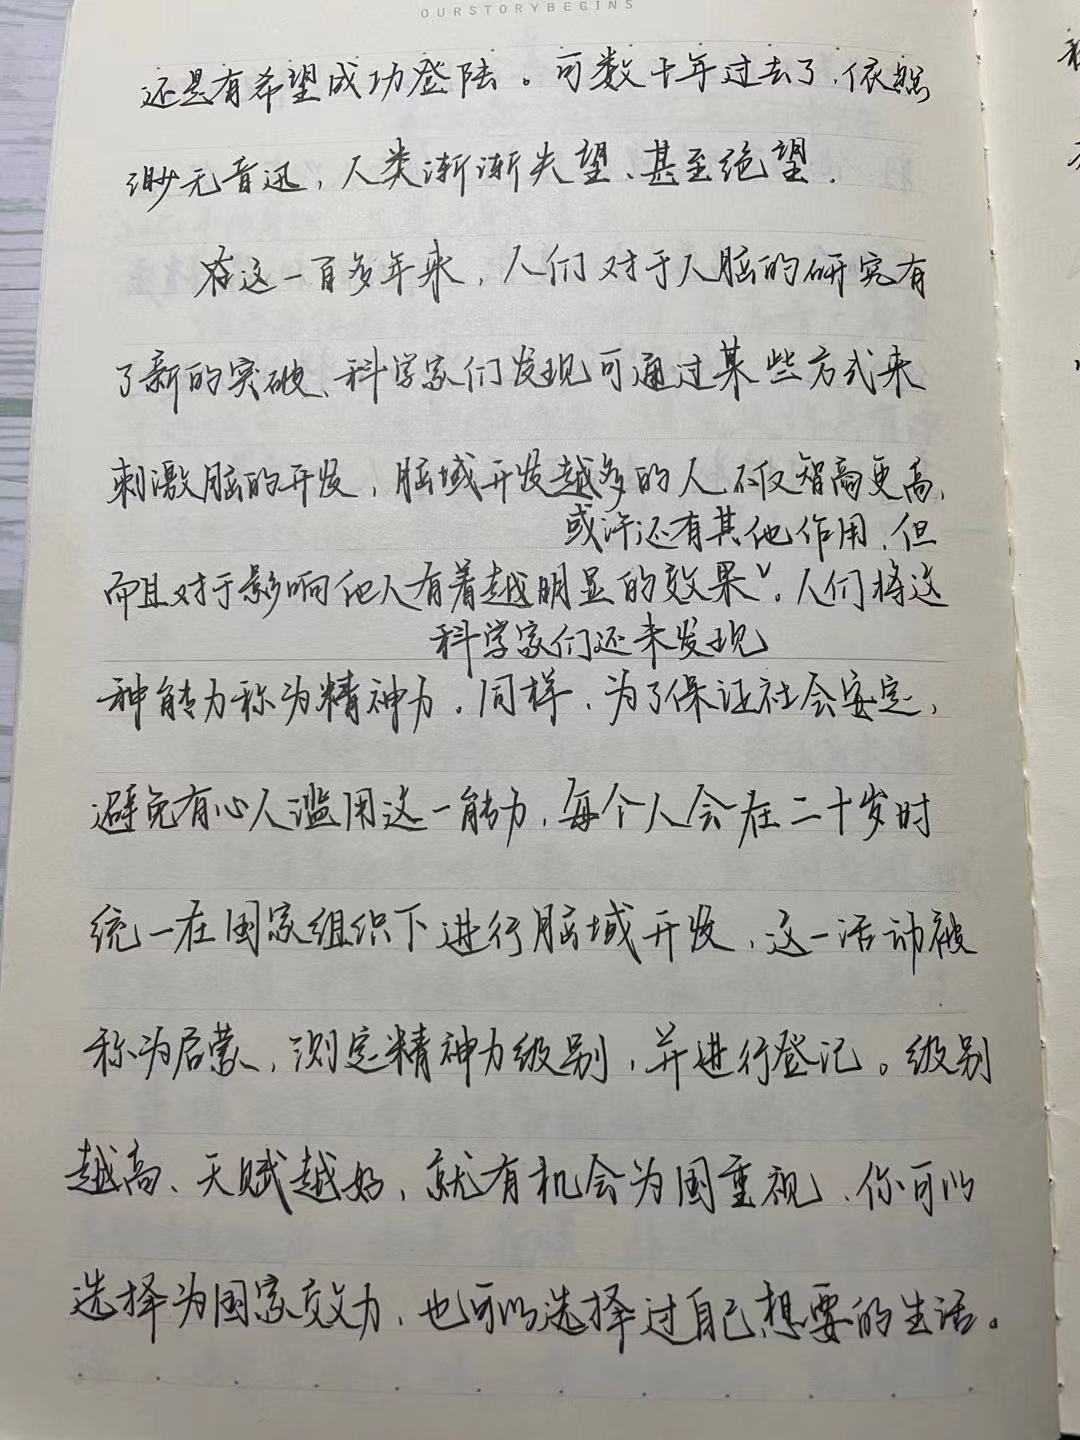 OURSTORYBEGINS
还是有希望成功登陆。可数十年过去了,依然
渺无音迅,人类渐渐失望、甚至绝望.
在这一百多年来,人们对于人脑的研究有
了新的突破、科学家们发现可通过某些方式来
刺激脑的开发,脑域开发越多的人,不仅智商更高,
或许还有其他作用,但
而且对于影响他人有着越明显的效果√。人们将这
科学家们还未发现
种能力称为精神力。同样,为了保证社会安定,
避免有心人滥用这一能力,每个人会在二十岁时
统一在国家组织下进行脑域开发,这一活动被
称为启蒙,测定精神力级别,并进行登记。级别
越高、天赋越好,就有机会为国重视、你可以
选择为国家效力,也可以选择过自己想要的生活。